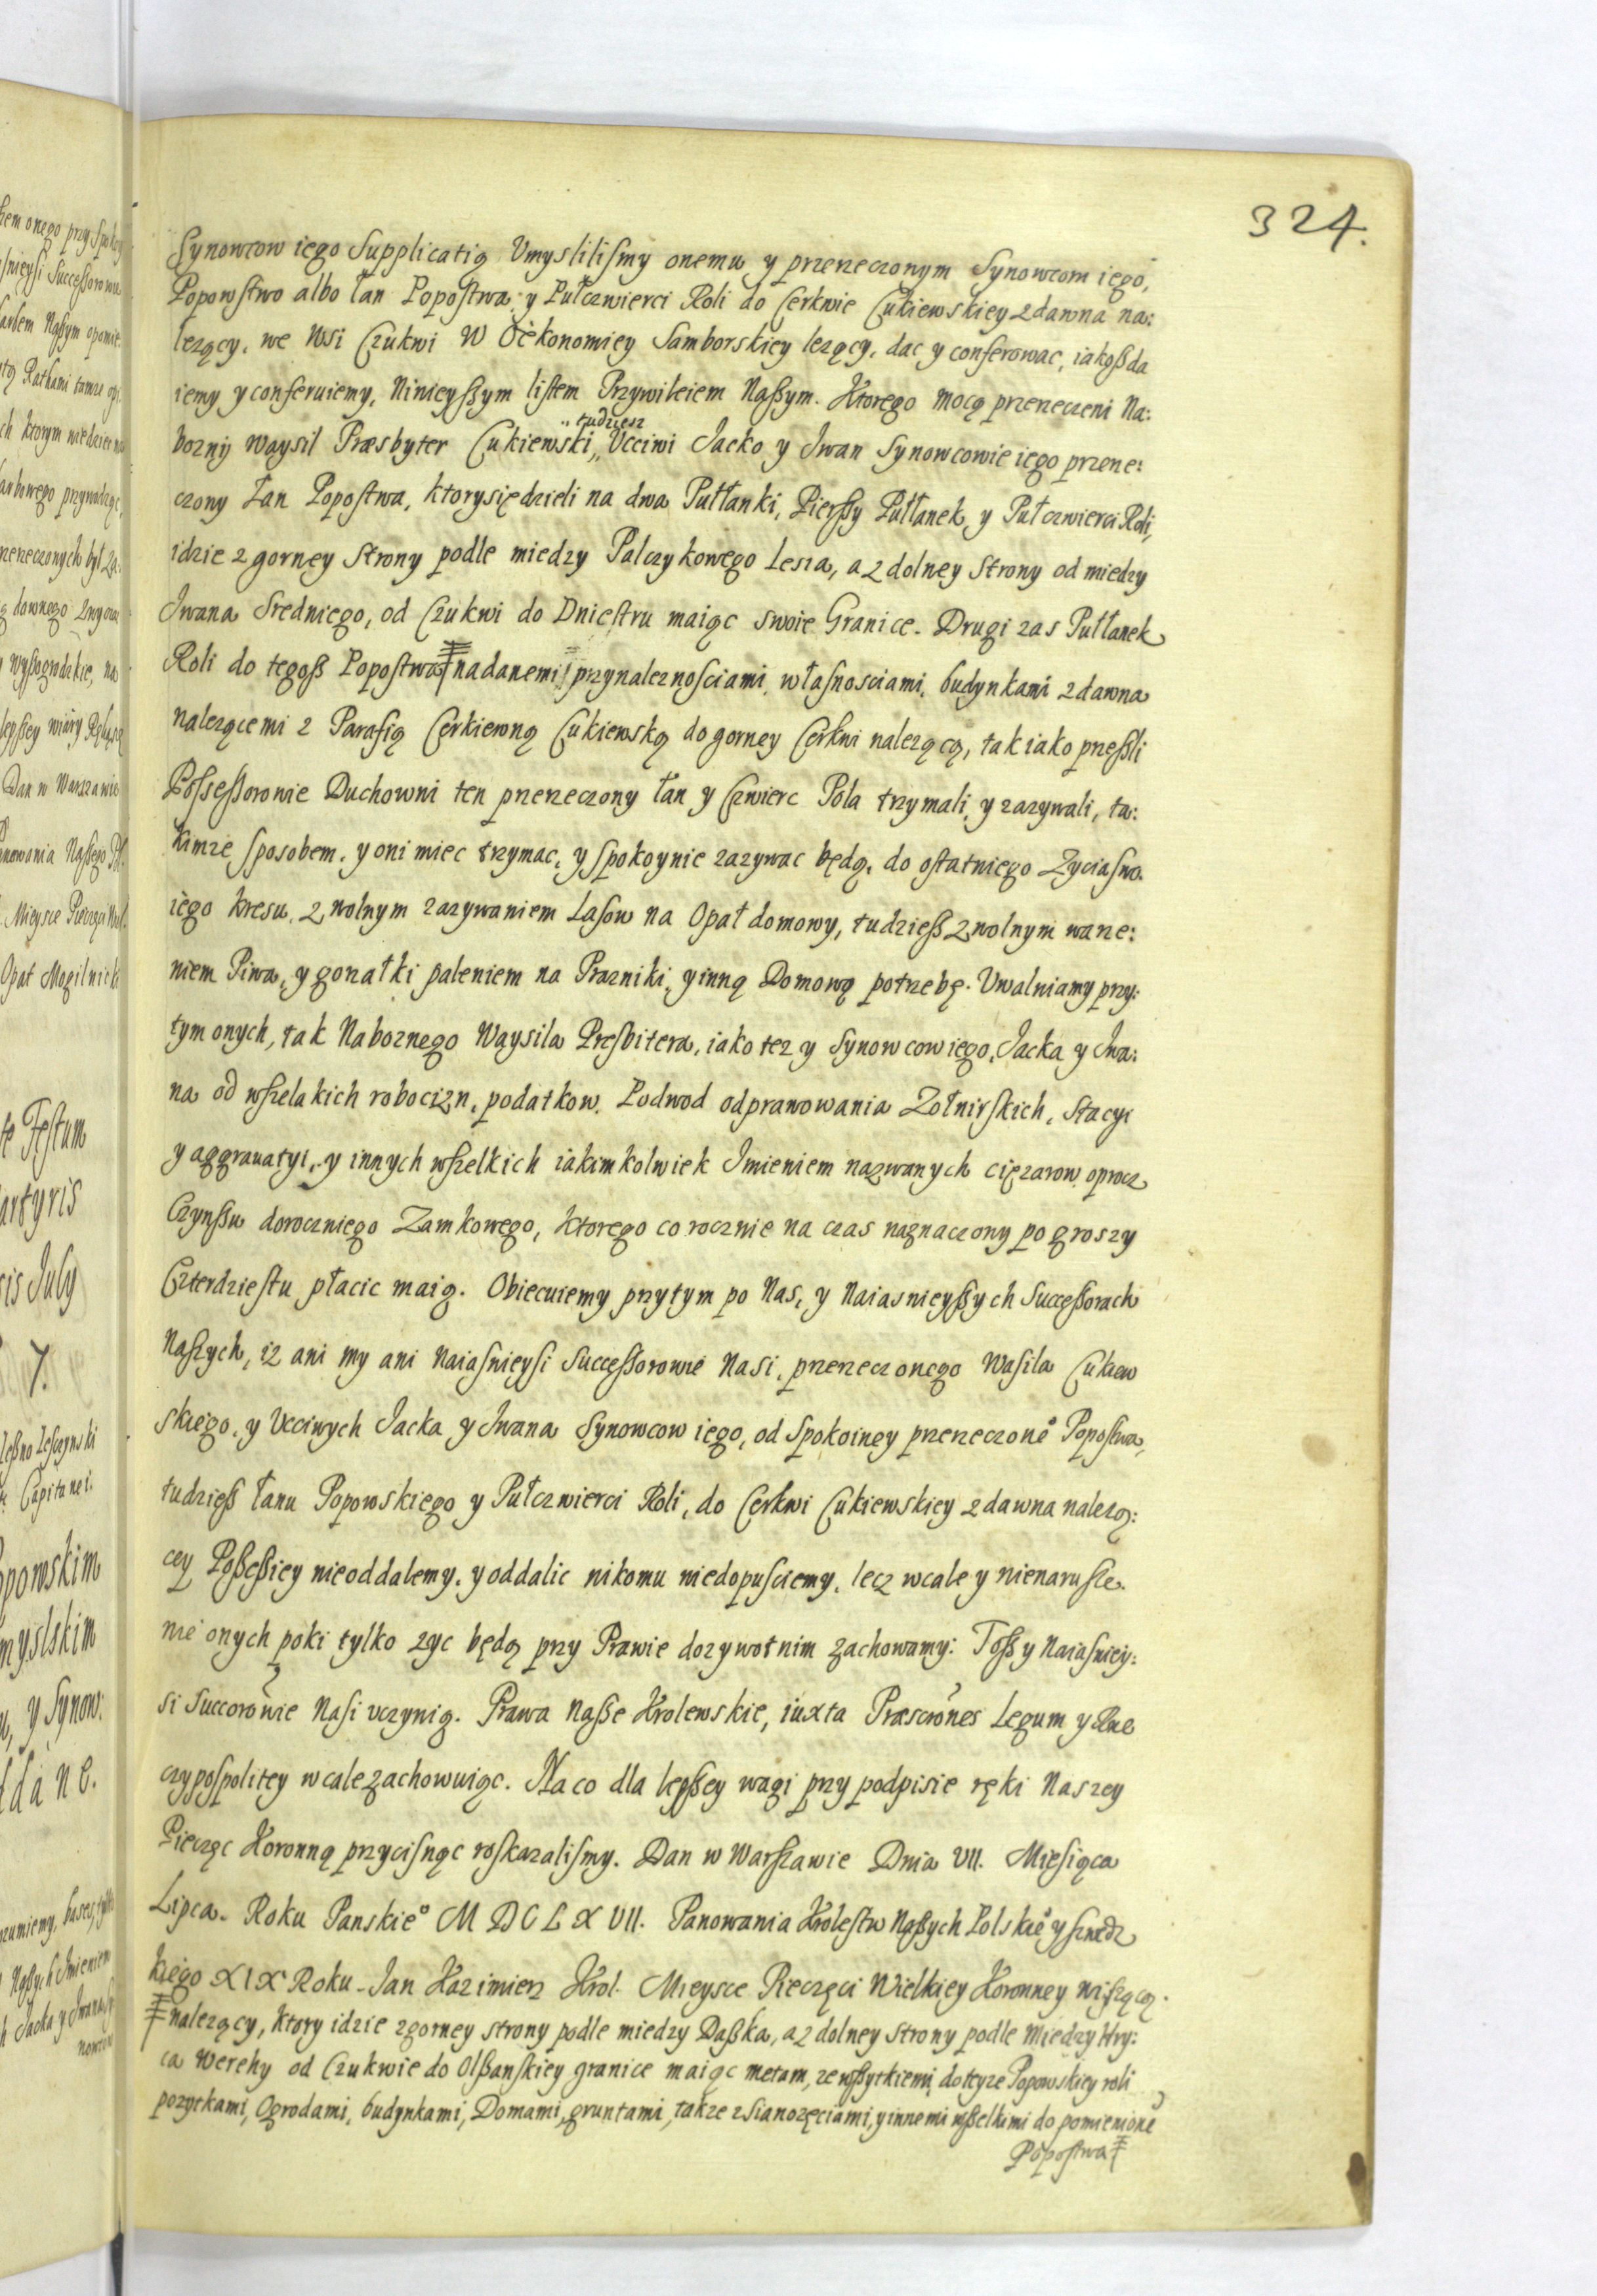 324.
Synowcow iego Supplicatią Umyslilismy onemu y przerzeczonym Synowcom iego,
Popowstwo albo łan Popostwa, y Pułczwierci Roli do Cerkwie Cukiewskiey zdawna na:
lezący, we Wsi Czukwi W Oekonomiey Samborskiey lezący, dac y conferowac, iakoßda
iemy y conferuiemy, Ninieyßym listem Przywileiem Naßym. Ktorego mocą przerzeczeni Na:
bozny Waysil Præsbyter Cukiewski, tudziesz Ucciwi Jacko y Jwan Synowcowie iego przerze:
czony Łan Popostwa, ktorysiędzieli na dwa Pułłanki, Pierßy Pułłanek, y Pułczwierci Roli,
idzie z gorney Strony podle miedzy Palczykowego Lesza, a z dolney Strony od miedzy
Jwana Sredniego, od Czukwi do Dniestru maiąc swoie Granice. Drugi zas Pułłanek
Roli do tegoß Popostwa ǂ nadanemi przynaleznosciami, własnosciami, budynkami zdawna
nalezącemi z Parafią Cerkiewną Cukiewską do gorney Cerkwi nalezącą, tak iako przeßli
Possessorowie Duchowni ten przerzeczony łan y Czwierc Pola trzymali, y zazywali, ta:
kimze sposobem, y oni miec trzymac, y spokoynie zazywac będą, do ostatniego Zycia swo.
iego kresu, z wolnym zazywaniem Lasow na Opał domowy, tudzieß z wolnym warze:
niem Piwa, y gorałki paleniem na Prazniki, y inną Domową potrzebę. Uwalniamy przy:
tym onych, tak Naboznego Waysila Presbitera, iako tez y Synowcow iego, Jacka y Jwa:
na od wszelakich robocizn, podatkow, Podwod odprawowania Zołnirskich, Stacyi
y aggrauatyi, y innych wszelkich iakimkolwiek Jmieniem nazwanych ciężarow, oprocz
Czynßu doroczniego Zamkowego, ktorego co rocznie na czas naznaczony po groszy
Czterdziestu płacic maią. Obiecuiemy przytym po Nas, y Naiasnieyßych Succeßorach
Naszych, iz ani my ani Naiasnieysi Succeßorowie Nasi, przerzeczonego Wasila Cukiew
skiego, y Ucciwych Jacka y Jwana Synowcow iego, od Spokoiney przerzeczone° Popostwa,
tudzieß łanu Popowskiego y Pułczwierci Roli, do Cerkwi Cukiewskiey zdawna nalezą:
cey Poßeßiey nieoddalemy, y oddalic nikomu niedopusciemy, lecz wcale y nienarusze.
nie onych poki tylko zyc będą przy Prawie dozywotnim zachowamy: Toß y Naiasniey:
si Succorowie Nasi uczynią. Prawa Naße Krolewskie, iuxta Præscrones Legum y Rze
czypospolitey wcale zachowuiąc. Na co dla lepßey wagi przy podpisie ręki Naszey
Pieczęc Koronną przycisnąc roskazalismy. Dan w Warszawie Dnia VII. Miesiąca
Lipca. Roku Panskie° M DC L X VII. Panowania Krolestw Naßych Polskie° y szwedz
kiego XIX Roku. Jan Kazimierz Krol. Mieysce Pieczęci Wielkiey Koronney wiszącey.
ǂ nalezący, ktory idzie z gorney strony podle miedzy Daßka, a z dolney strony podle miedzy Hry:
ca Werehy od Czukwie do Olßanskiey granice maiąc metam, ze wßytkiemi do teyze Popowskiey roli
pozytkami, Ogrodami, budynkami, Domami, gruntami, takze z sianozęciami, y innemi wßelkimi do pomienione°
Popostwa ǂ